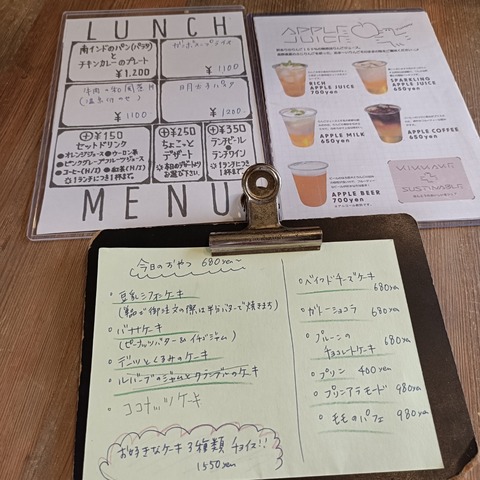 LUNCH
南インドのパン(パラタ)
チキンカレーのプレート
¥1,200
ガパオ
¥1100
¥1100
明太子パスタ
¥1200
⊕¥150
セットドリンク
●オレンジジュース●ウーロン茶
●ピンクグレープフルーツジュース
●コーヒー(H/I) ●紅茶(H/I)
☆1ランチにつき1杯まで
⊕¥250
ちょこっと
デザート
お選び下さい。
⊕¥350
ランチビール
or
ランチワイン
1ランチにつき
1杯まで
MENU
APPLE
JUICE
RICH
APPLE JUICE
700yen
APPLE JUICE
650yen
APPLE MILK
650yen
APPLE COFFEE
650yen
APPLE BEER
700yen
SUSTAINABLE
今日のおやつ 680yen~
・豆乳シフォンケーキ
(米粉が御注文の際は半分バターで焼きます)
・バナナケーキ
(ピーナッツバター & イチゴジャム)
・デーツとくるみのケーキ
・ルバーブのジャムとクランブルのケーキ
・ココナッツケーキ
お好きなケーキ3種類チョイス!!
1550yen
・ベイクドチーズケーキ
680yen
・ガトーショコラ 680yen
・プルーンの
チョコレートケーキ 680yen
・プリン 400yen
・プリンアラモード 980yen
・モモのパフェ 980yen